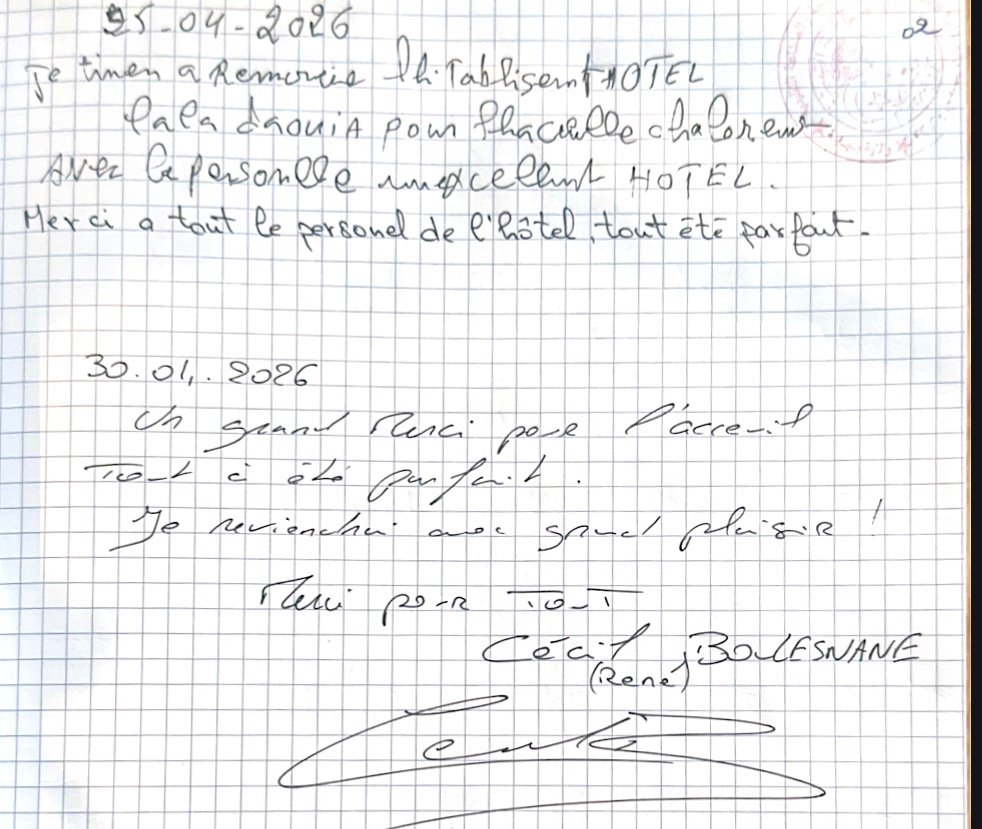 02
25-04-2026
Je tinen a Remercie lh.Tablisemt HOTEL
lala daouiA pour lhacuelle chaloreus
Avec le personelle un excellent HOTEL.
Merci a tout le personel de l'hôtel, tout été parfait.
30.01.2026
Un grand Merci pour l'accueil
Tout à été parfait.
Je reviendrai avec grand plaisir !
Merci pour TOUT
Cécil BOULESNANE
(René)